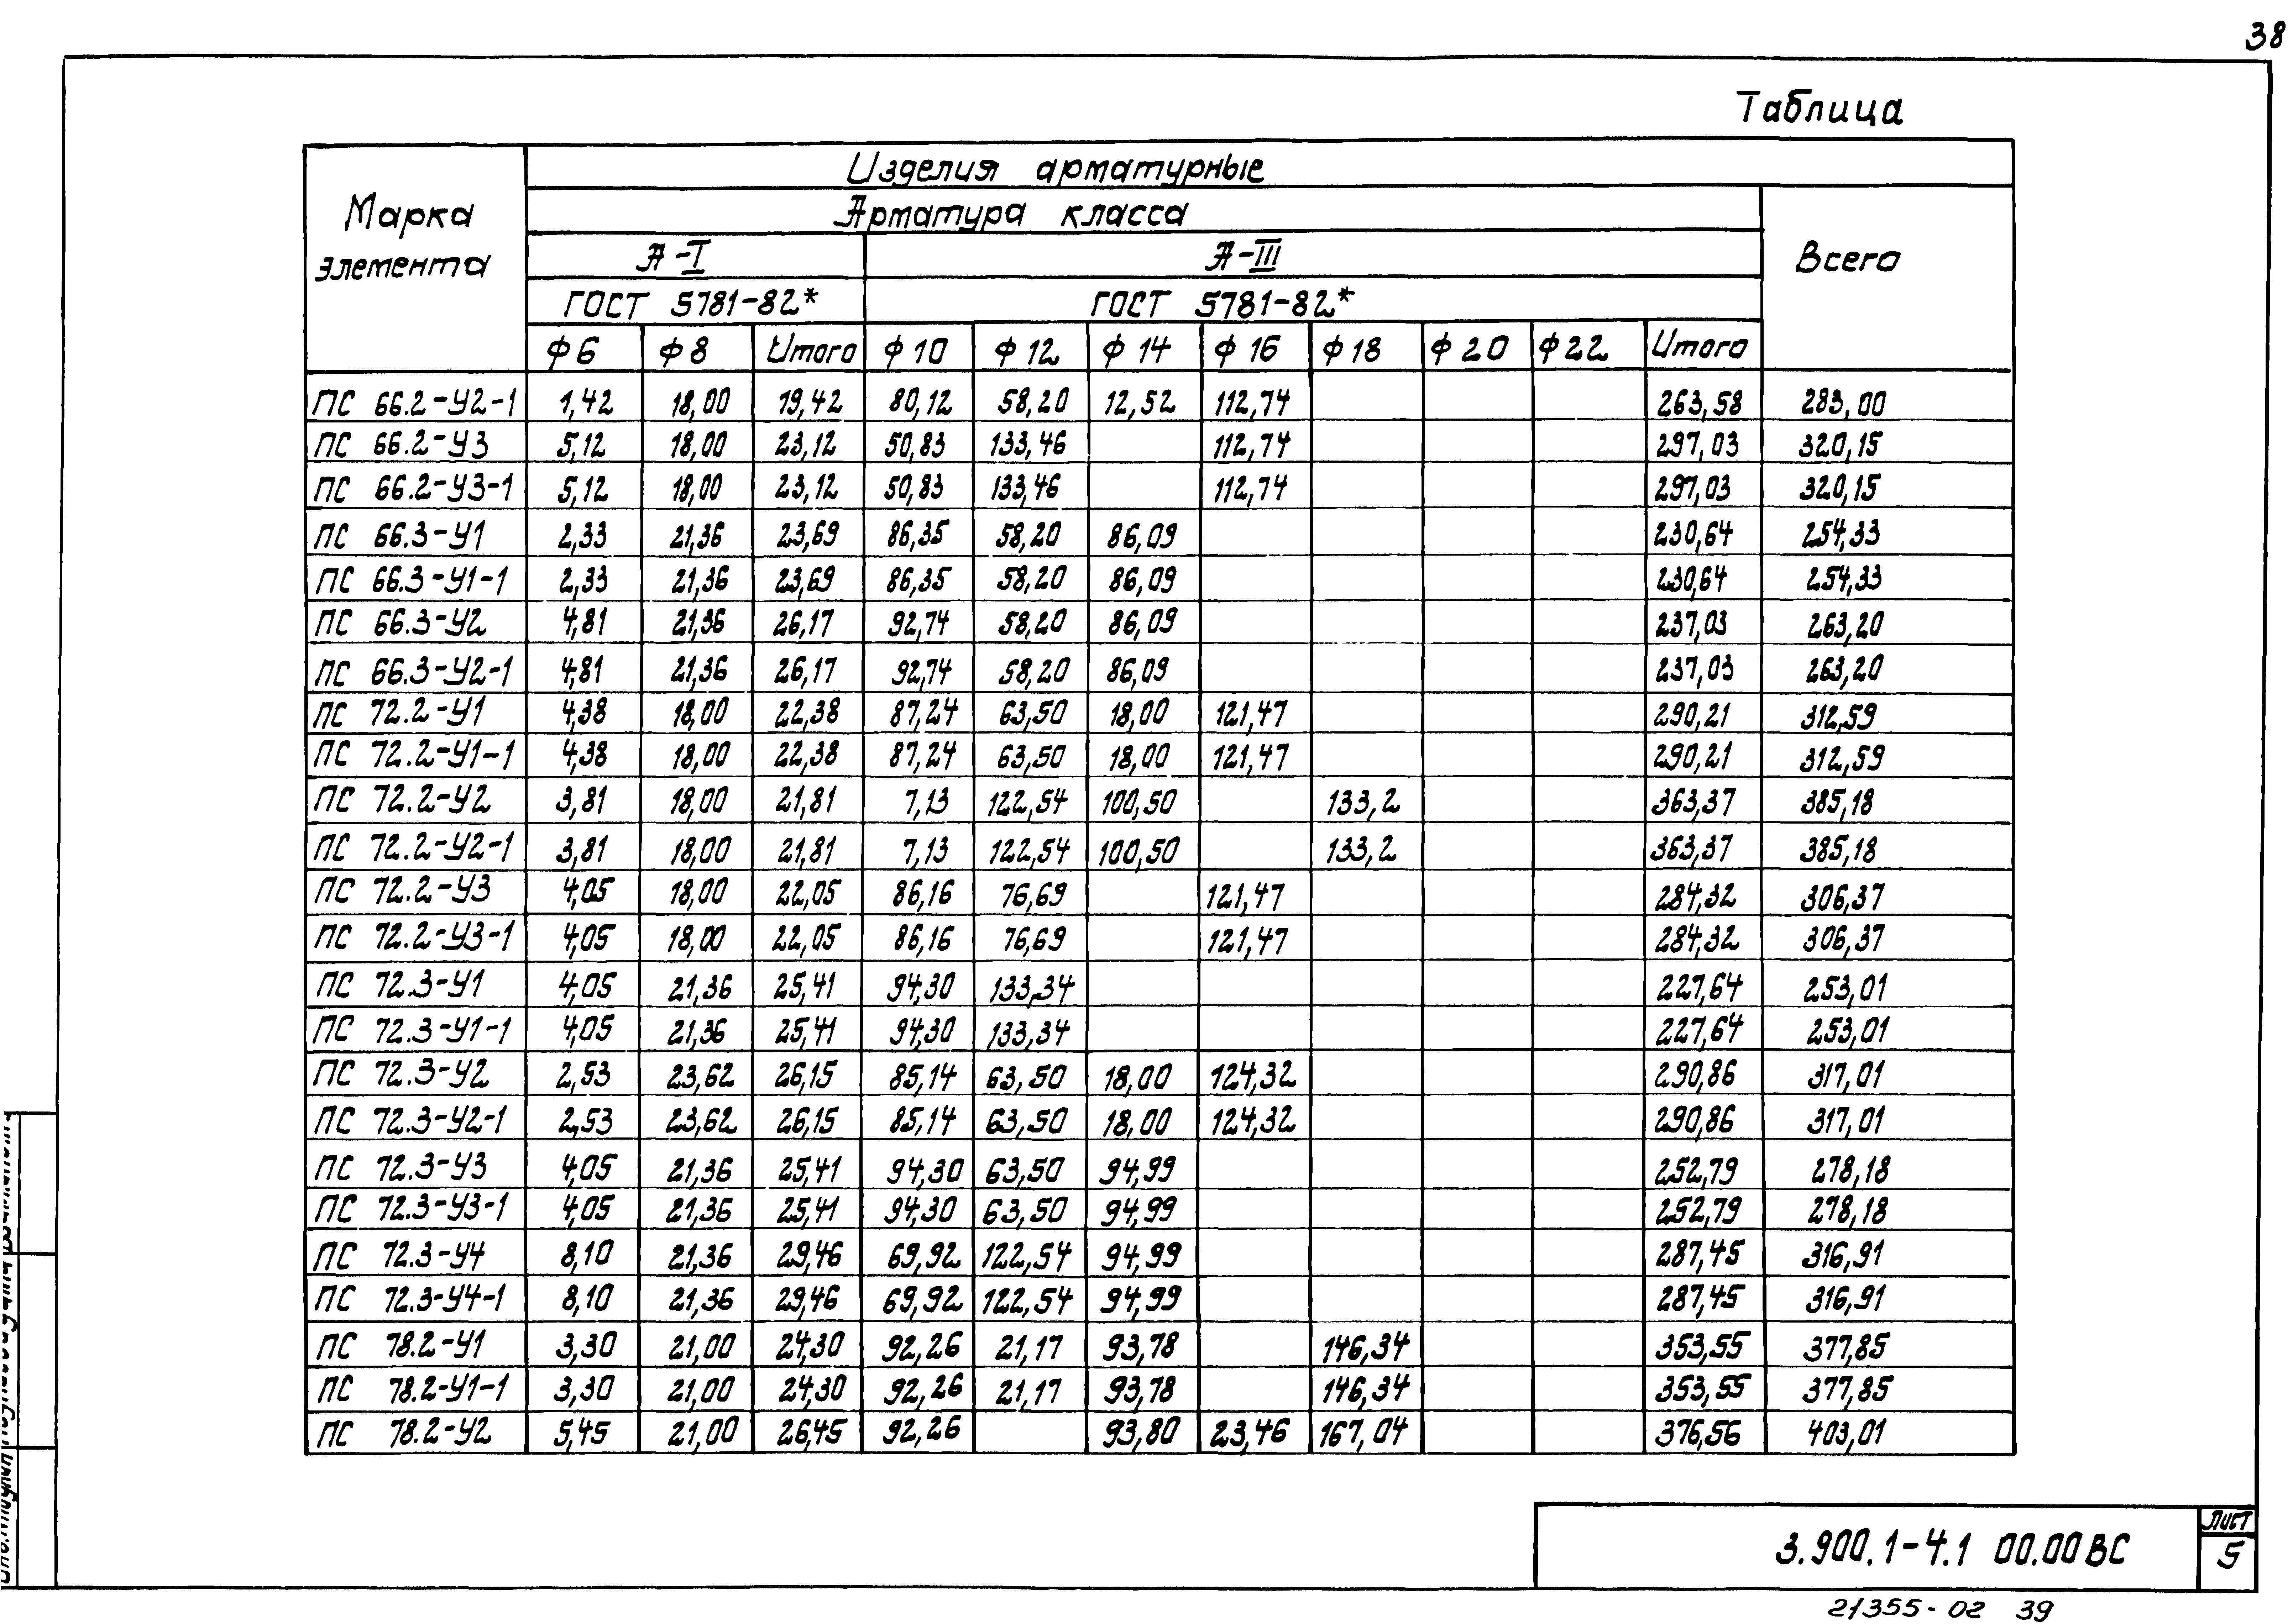 38
Таблица
Марка элемента
Изделия арматурные
Арматура класса
Всего
А-I
А-III
ГОСТ 5781-82*
ГОСТ 5781-82*
ф6 ф8 Итого ф10 ф12 ф14 ф16 ф18 ф20 ф22 Итого
ПС 66.2-У2-1 1,42 18,00 19,42 80,12 58,20 12,52 112,74 263,58 283,00
ПС 66.2-У3 5,12 18,00 23,12 50,83 133,46 112,74 297,03 320,15
ПС 66.2-У3-1 5,12 18,00 23,12 50,83 133,46 112,74 297,03 320,15
ПС 66.3-У1 2,33 21,36 23,69 86,35 58,20 86,09 230,64 254,33
ПС 66.3-У1-1 2,33 21,36 23,69 86,35 58,20 86,09 230,64 254,33
ПС 66.3-У2 4,81 21,36 26,17 92,74 58,20 86,09 237,03 263,20
ПС 66.3-У2-1 4,81 21,36 26,17 92,74 58,20 86,09 237,03 263,20
ПС 72.2-У1 4,38 18,00 22,38 87,24 63,50 18,00 121,47 290,21 312,59
ПС 72.2-У1-1 4,38 18,00 22,38 87,24 63,50 18,00 121,47 290,21 312,59
ПС 72.2-У2 3,81 18,00 21,81 7,13 122,54 100,50 133,2 363,37 385,18
ПС 72.2-У2-1 3,81 18,00 21,81 7,13 122,54 100,50 133,2 363,37 385,18
ПС 72.2-У3 4,05 18,00 22,05 86,16 76,69 121,47 284,32 306,37
ПС 72.2-У3-1 4,05 18,00 22,05 86,16 76,69 121,47 284,32 306,37
ПС 72.3-У1 4,05 21,36 25,41 94,30 133,34 227,64 253,01
ПС 72.3-У1-1 4,05 21,36 25,41 94,30 133,34 227,64 253,01
ПС 72.3-У2 2,53 23,62 26,15 85,14 63,50 18,00 124,32 290,86 317,01
ПС 72.3-У2-1 2,53 23,62 26,15 85,14 63,50 18,00 124,32 290,86 317,01
ПС 72.3-У3 4,05 21,36 25,41 94,30 63,50 94,99 252,79 278,18
ПС 72.3-У3-1 4,05 21,36 25,41 94,30 63,50 94,99 252,79 278,18
ПС 72.3-У4 8,10 21,36 29,46 69,92 122,54 94,99 287,45 316,91
ПС 72.3-У4-1 8,10 21,36 29,46 69,92 122,54 94,99 287,45 316,91
ПС 78.2-У1 3,30 21,00 24,30 92,26 21,17 93,78 146,34 353,55 377,85
ПС 78.2-У1-1 3,30 21,00 24,30 92,26 21,17 93,78 146,34 353,55 377,85
ПС 78.2-У2 5,45 21,00 26,45 92,26 93,80 23,46 167,04 376,56 403,01
3.900.1-4.1 00.00ВС
Лист
5
21355-02 39